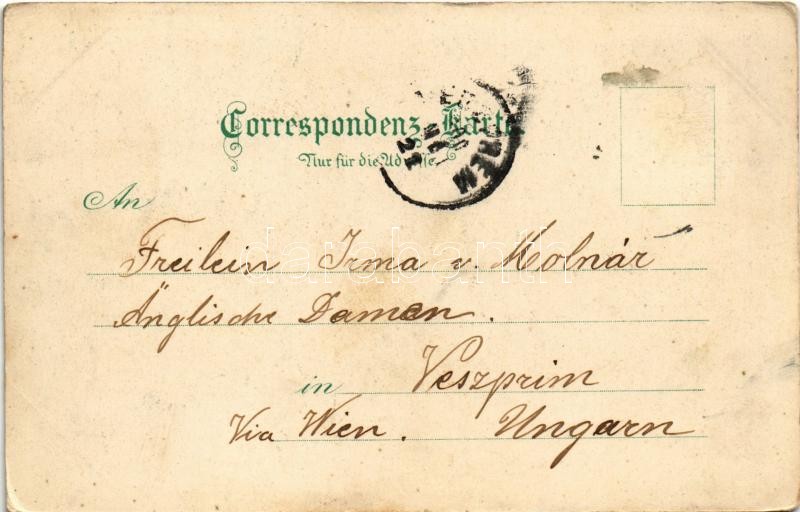 Correspondenz-Karte
Nur für die Adresse
An
Freilein Irma v. Molnár
Änglische Damen.
in Veszprim
Via Wien. Ungarn
darabanth